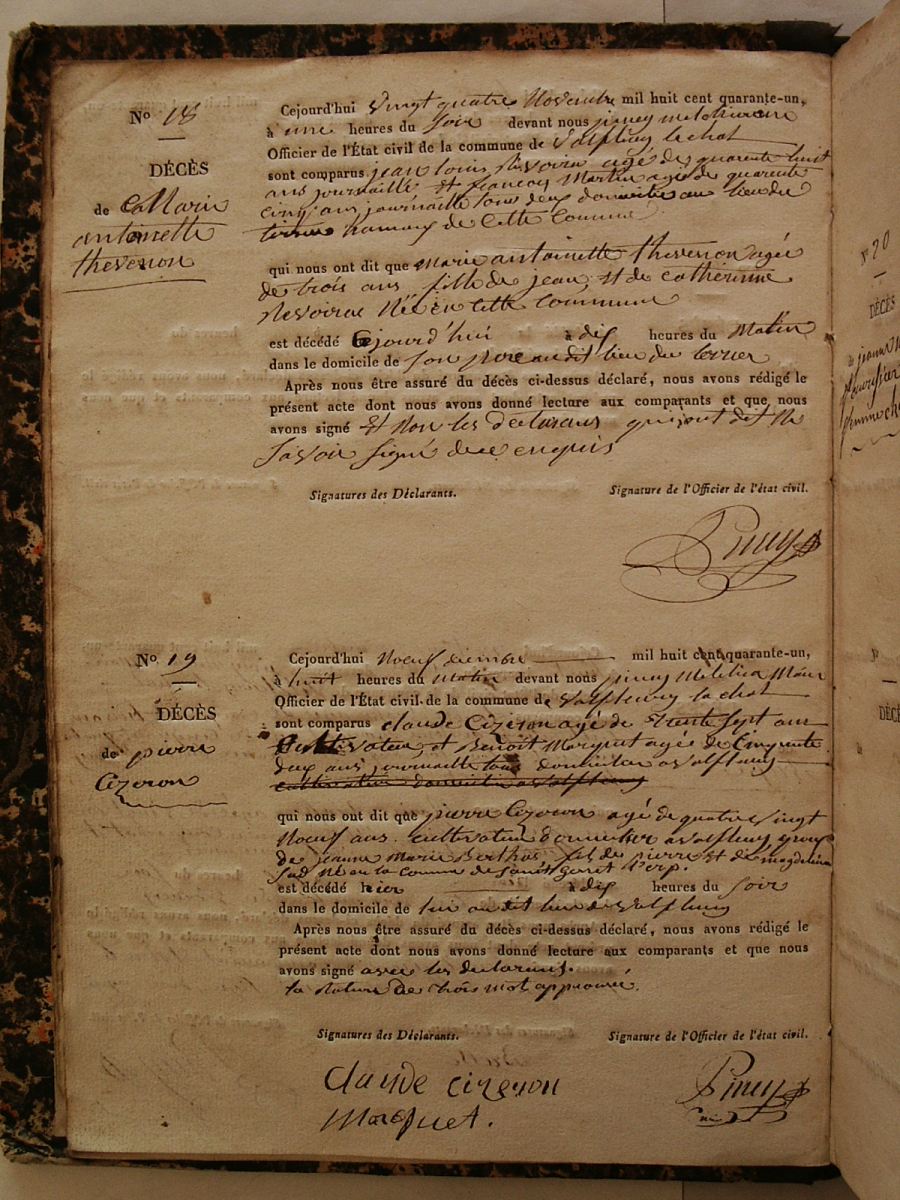 No 18
DÉCÈS
de Marie
antoinette
thevenon
Cejourd'hui vingt quatre Novembre mil huit cent quarante-un,
à une heures du Soir devant nous piney
Officier de l'État civil de la commune de Valfleury la chat
sont comparus jean louis Nevoirac agé de quarente huit
ans journaille Et françois Martin agé de quarente
cinq ans journaille tous deux domicilié au lieu du
hamaux de Cette Commune
qui nous ont dit que Marie antoinette thevenon agée
de trois ans fille de jean Et de catherinne
Nevoirac Née en Cette Commune
est décédé Cejourd'hui à dix heures du Matin
dans le domicile de son pere au dit lieu du terrier
Après nous être assuré du décès ci-dessus déclaré, nous avons rédigé le
présent acte dont nous avons donné lecture aux comparants et que nous
avons signé Et Non les declarans qui ont dit Ne
Savoir Signé de ce enquis
Signatures des Déclarants. Signature de l'Officier de l'état civil.
Piney
No 19
DÉCÈS
de pierre
Cizeron
Cejourd'hui Noeuf decembre mil huit cent quarante-un,
à huit heures du Matin devant nous piney Maire
Officier de l'État civil de la commune de Valfleury la chat
sont comparus claude Cizeron agé de trente Sept ans
Cultivateur et Benoit Marquet agée de Cinquente
deux ans journaille tous domicilier a Valfleury
cultivateur domicilier a Valfleury
qui nous ont dit que pierre Cizeron agé de quatre vingt
Noeuf ans cultivateur domicilier a Valfleury epoux
de jeanne Marie Berthas fils de pierre Et de magdeleine
Né en la Comune de Saint
est décédé hier à dix heures du Soir
dans le domicile de lui au dit lieu de Valfleury
Après nous être assuré du décès ci-dessus déclaré, nous avons rédigé le
présent acte dont nous avons donné lecture aux comparants et que nous
avons signé avec les declarans.
la Rature de trois mot approuvé.
Signatures des Déclarants. Signature de l'Officier de l'état civil.
claude cizeron
Marquet.
Piney
No 20
DÉCÈS
DÉCÈS